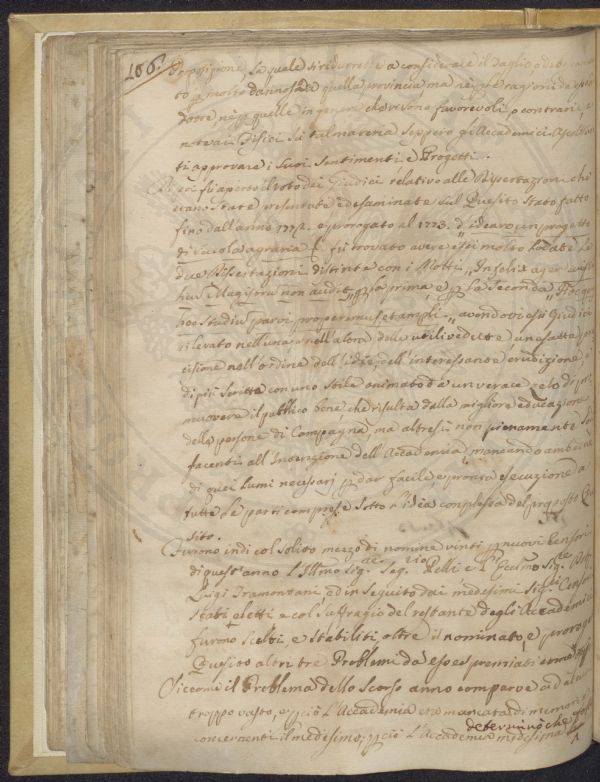 106.
Proposizione, la quale si ridurrebbe a considerare il taglio
to p molto dannoso a quella provincia ma nè p le ragioni
dotte, nè p quelle in genere che vi sono favorevoli, o contrarie, e
note ai Fisici in tal materia seppero gl'Accademici Ascoltan
ti approvare i suoi sentimenti e Progetti.
fù aperto il voto dei Giudici relativo alle Dissertazioni che
erano state presentate ed esaminate sul Quesito stato fatto
fino dall'anno 1772. e prorogato al 1773. d'ideare un progetto
di Scuola agraria fù trovato avere essi molto lodate le
due Dissertazioni distinte con i Motti, Infelix ager cuius
Magistrum non audit p la prima, e p la seconda, Hoc opus
hoc studium parvi properemus et ampli, avendovi essi Giudici
rilevato nell'una e nell'altra delle utili vedute un esatta pre
cisione nell'ordine dell'idee, dell'interessante erudizione, e
di più scritte con uno stile animato da un verace zelo di pro
muovere il pubblico bene, che risulta dalla migliore educazione
delle persone di Campagna, ma altresì non pienamente sodis
facenti all'Intenzione dell'Accademia, mancando ambedue
di quei lumi necessarj p dar facile e pronta esecuzione a
tutte le parti comprese sotto l'idea complessa del proposto Que
sito.
Furono indi col solito mezzo di nomine vinti p nuovi Censori
di quest'anno l'Illmo Sig. Seg. Pelli e l'Eccelmo Sig. Dott.
Luigi Tramontani, ed in seguito dai medesimi Sigg. Censori
stati eletti e col suffragio del restante degli Accademici
furono scelti, e stabiliti, oltre il nominato, e prorogato
Quesito altri tre Problemi da essere premiati
Siccome il Problema dello scorso anno comparve ad alcuni
troppo vasto, e pciò l'Accademia era mancata di memorie
determinò che
concernenti il medesimo; pciò l'Accademia medesima